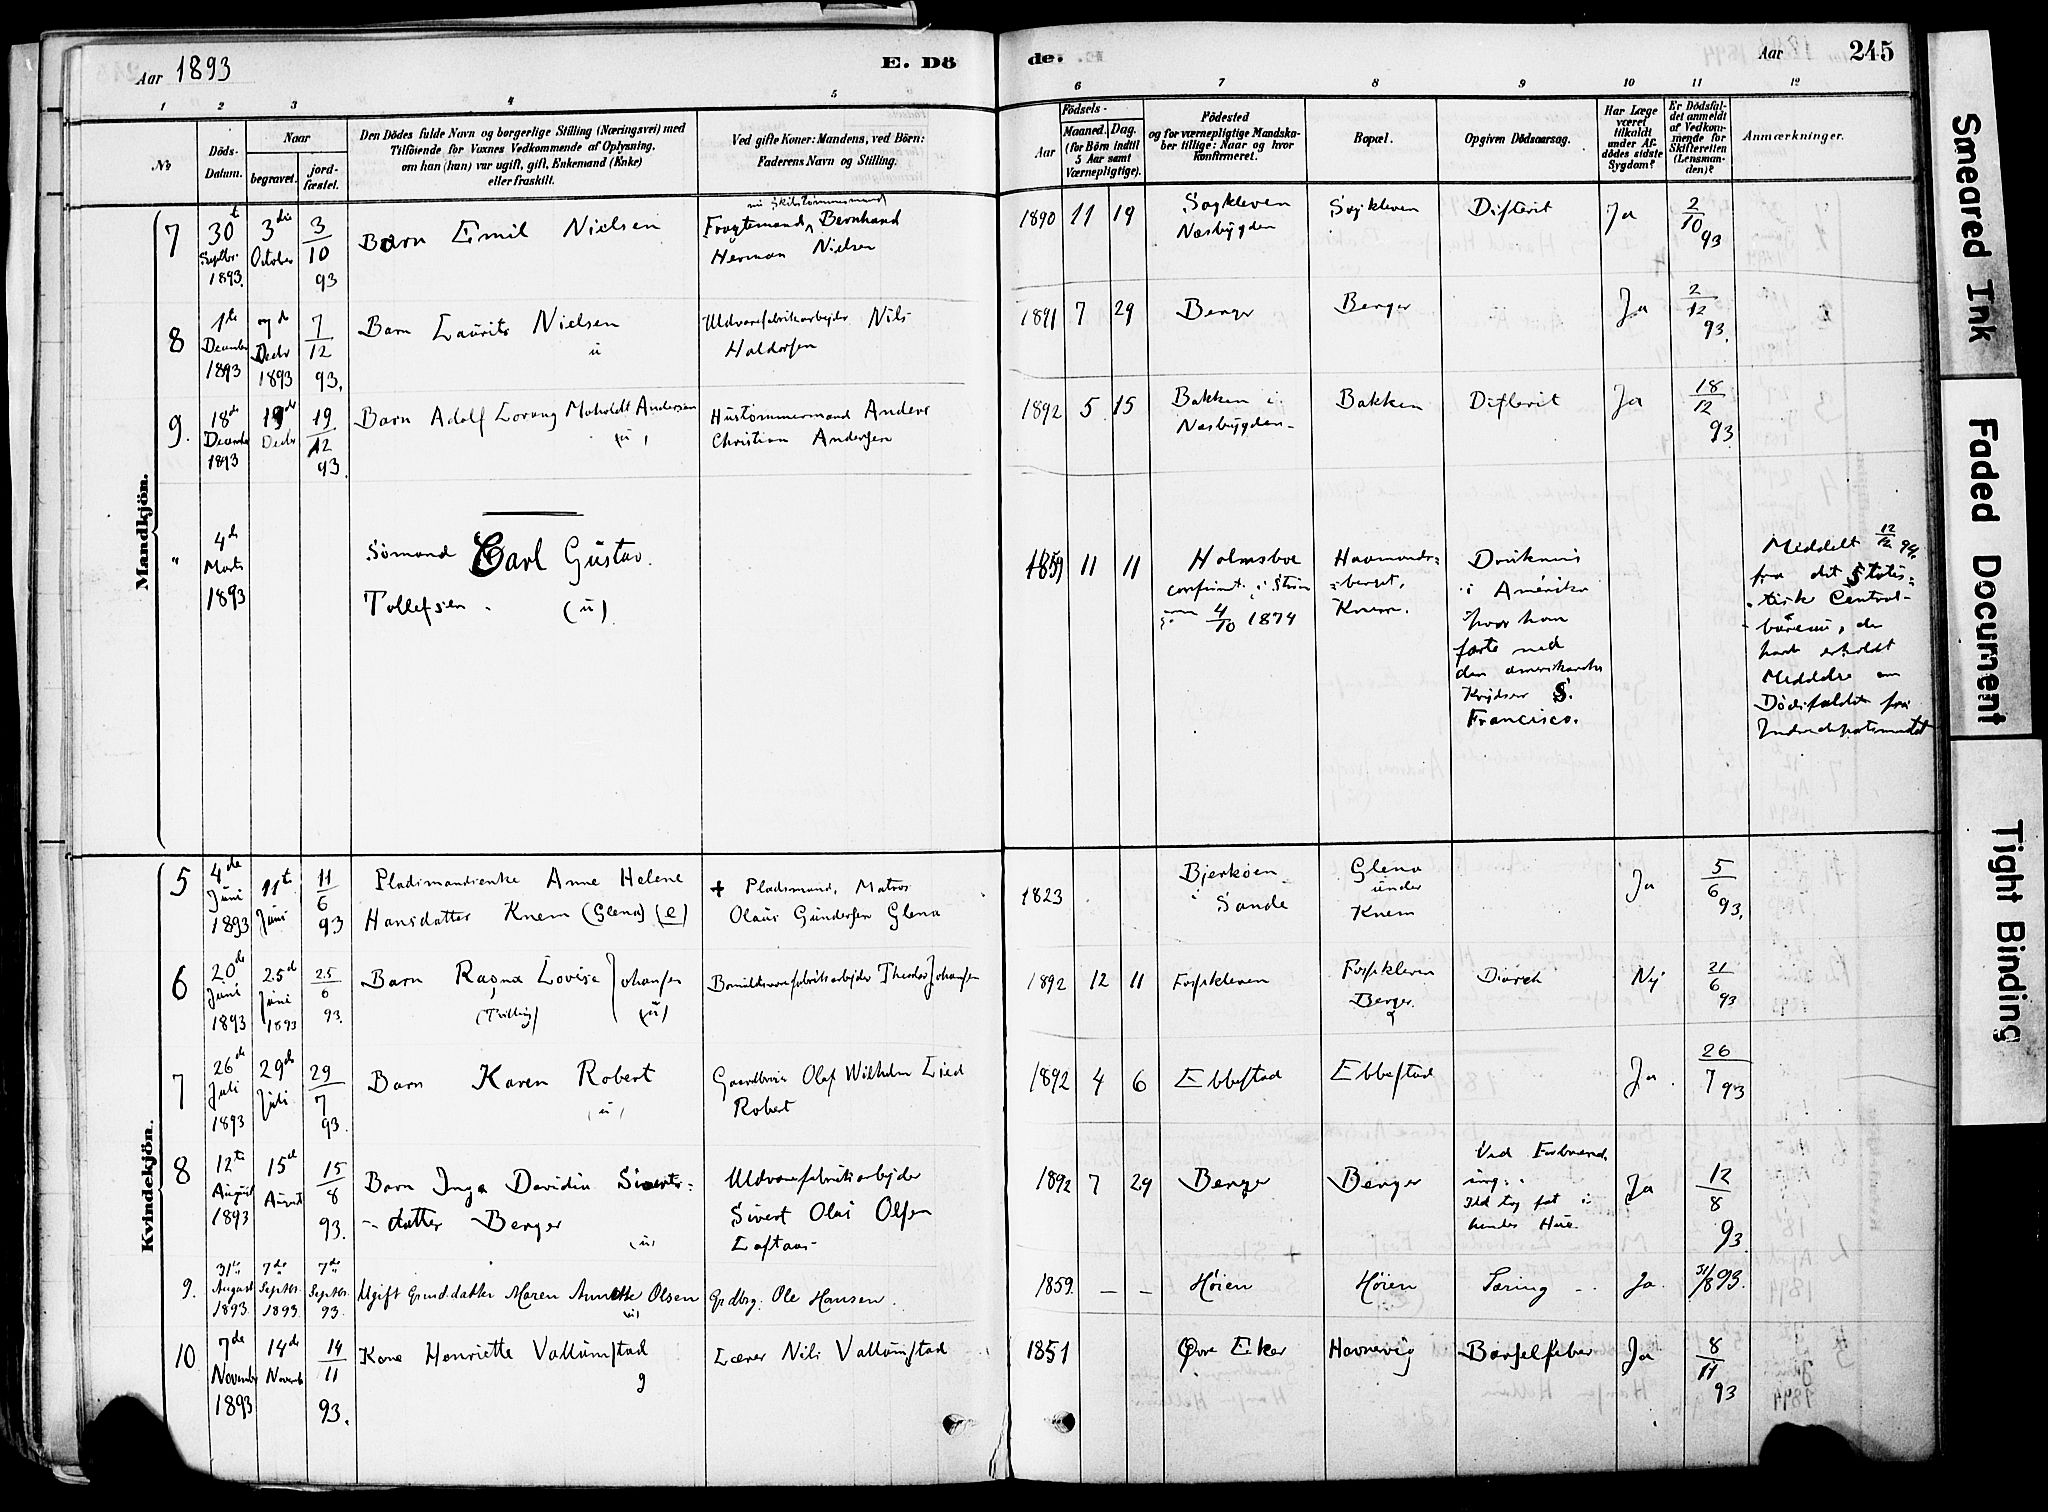 Aar 1893
E. Dö
de.
Aar
245
1 2 3 4 5 6 7 8 9 10 11 12
No
Döds-
Datum.
Naar
begravet.
jord-
fæstet.
Den Dödes fulde Navn og borgerlige Stilling (Næringsvei) med
Tilföiende for Voxnes Vedkommende af Oplysning,
om han (hun) var ugift, gift, Enkemand (Enke)
eller fraskilt.
Ved gifte Koner: Mandens, ved Börn:
Faderens Navn og Stilling.
Födsels-
Aar
Maaned. Dag.
(for Börn indtil
5 Aar samt
Værnepligtige).
Födested
og for værnepligtige Mandska-
ber tillige: Naar og hvor
konfirmeret.
Bopæl.
Opgiven Dödsaarsag.
Har Læge
været
tilkaldt
under Af-
dödes sidste
Sygdom?
Er Dödsfal-
det anmeldt
af Vedkom-
mende for
Skifteretten
(Lensman-
den)?
Anmærkninger.
Mandkjön.
7
30t
Septbr.
1893.
3die
October
3/10
93
Barn Emil Nielsen
nu Skibstømmermand
Fragtemand Bernhard
Herman Nielsen
1890 11 19
Sagkleven
Næsbygden
Sagkleven
Difterit
Ja
2/10 93
8
1ste
December
1893
7de
Decbr
1893
7/12
93.
Barn Laurits Nielsen
u
Uldvarefabrikarbejder Nils
Haldorsen
1891 7 29
Berger
Berger
Ja
2/12 93.
9.
18de
December
1893
19de
Decbr
19/12
93.
Barn Adolf Lorang Moholdt Andersen
(u)
Hustømmermand Anders
Christian Andersen
1892 5 15
Bakken i
Næsbygden
Bakken
Difterit
Ja
18/12 93
"
4de
Marts
1893
Sømand Carl Gustav
Tollefsen. (u)
1859 11 11
Holmsboe
confirmt. i Strøm
4/10 1874
Havnords-
berget,
Knem.
Druknet
i Amerika
hvor han
førte med
den amerikanske
Krydser S.
Francisco.
Meddelt 12/12 94.
fra det Statis-
tisk Central-
bureau, der
havde erholdt
Meddelse om
Dødsfaldet fra
Indredepartementet
Kvindekjön.
5
4de
Juni
1893
11te
Juni
11/6
93
Pladsmandsenke Anne Helene
Hansdatter Knem (Glena) (e)
+ Pladsmand, Matros
Olaus Gundersen Glena
1823
Bjerkøen
i Sande
Glena
under
Knem
Ja
5/6 93.
6
20de
Juni
1893
25d
Juni
1893
25/6
93.
Barn Ragna Lovise Johansen
(Tvilling) (u)
Bomuldsvarefabrikarbejder Theodor Johansen
1892 12 11
Fossekleven
Fossekleven
Berger
Diareh
Nej
21/6 93
7
26de
Juli
1893
29de
Juli
29/7
93.
Barn Karen Robert
(u)
Gaardbruger Olaf Wilhelm Lied
Robert
1892 4 6
Ebbestad
Ebbestad
Ja.
26/7 93
8
12te
August
1893
15d
August
15/8
93.
Barn Inga Davidia Siverts-
datter Berger
(u)
Uldvarefabrikarbejder
Sivert Olai Olsen
Loftaas
1892 7 29
Berger
Berger
Ved Forbrænd-
ing.
Ild tog fat i
hendes Haar
Ja
12/8 93
9.
31te
August
1893.
7de
Septbr.
1893.
7de
Septbr.
93.
Ugift Grdd.datter Maren Annette Olsen
(u)
Grdbrg. Ole Hansen.
1859. – –
Høien
Høien
Tæring
Ja.
31/8 93.
10
7de
November
1893
14de
Novemb.
14/11
93.
Kone Henriette Vallumstad
g
Lærer Nils Vallumstad
1851
Øvre Eker
Havnevig
Barselfeber
Ja
8/11 93
Smeared Ink
Faded Document
Tight Binding